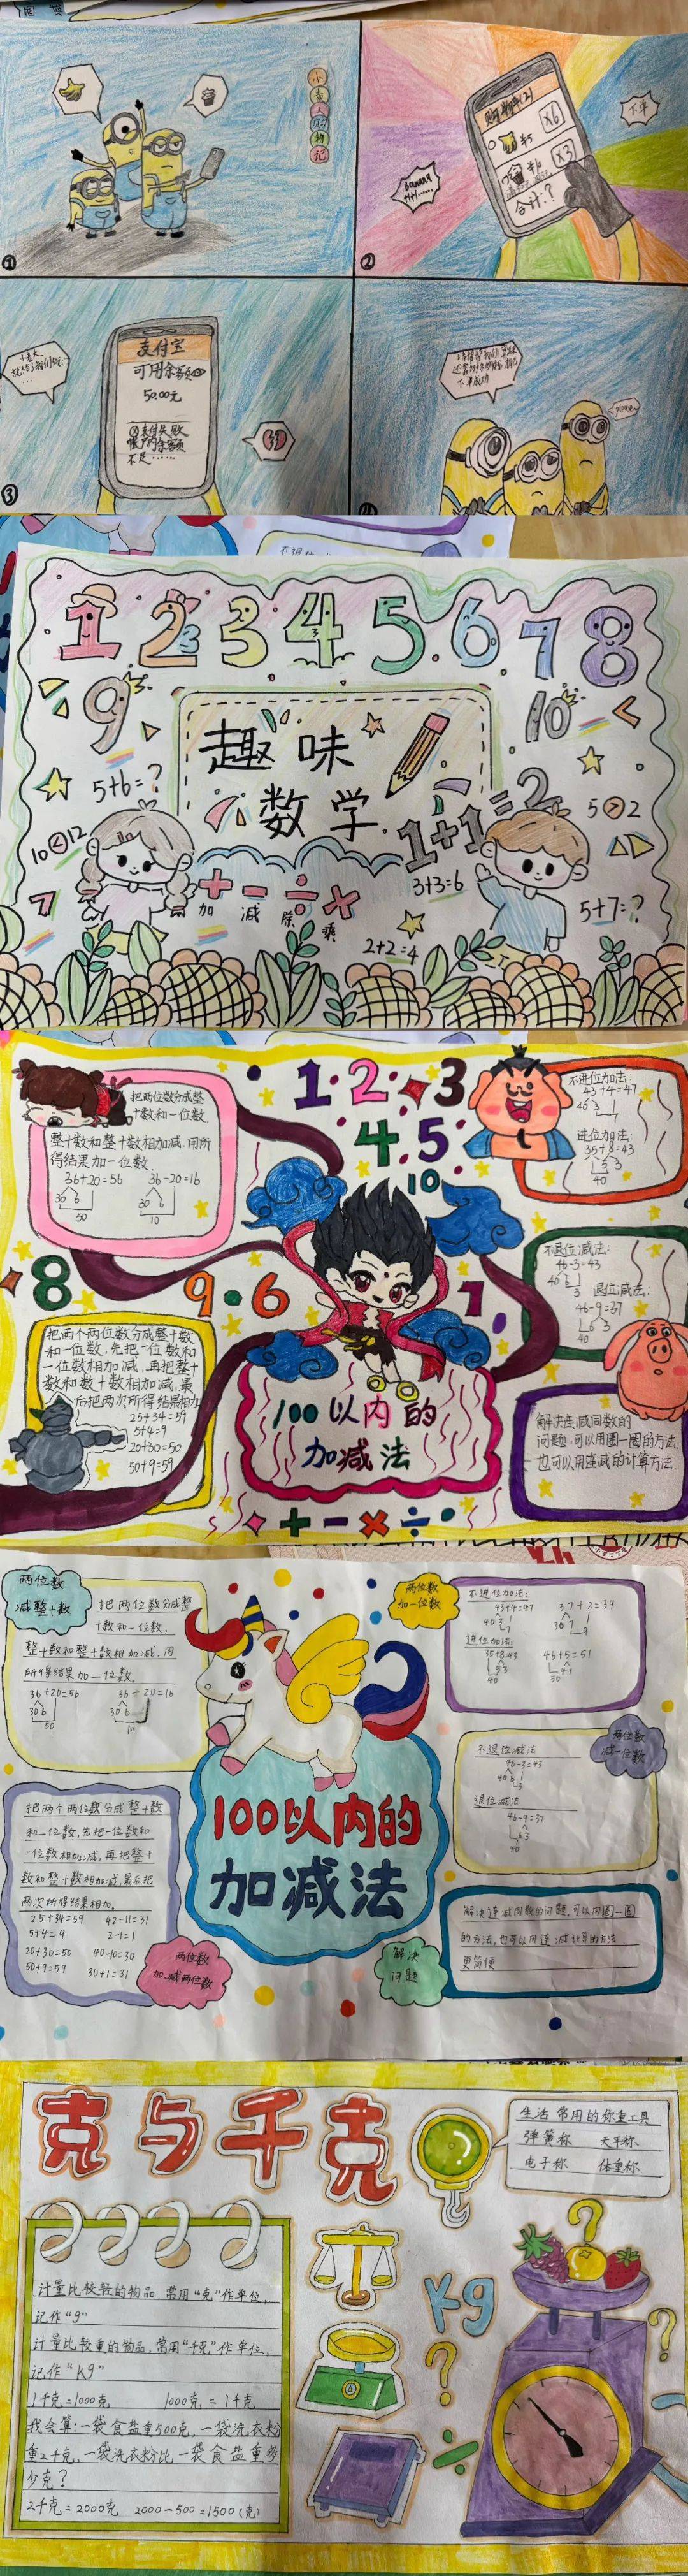 小
黄
人
购
物
记
①
购物车(2)
¥5
X6
X3
合计:?
下单
Banana
②
支付宝
可用余额
50.00元
支付失败
帐户内余额
不足……
③
下单成功
please~
1 2 3 4 5 6 7 8
9
10
趣味
数学
5+6=?
10<12
1+1=2
5>2
3+3=6
5+7=?
+ - ÷ ×
加 减 除 乘
2+2=4
把两位数分成整
十数和一位数,
整十数和整十数相加减,用所
得结果加一位数.
36+20=56 36-20=16
30 6 30 6
50 10
1·2·3
4·5·
10
不进位加法:
43+4=47
40 3
7
进位加法:
35+8=43
5 3
40
8
9·6
7
不退位减法:
46-3=43
40 6
3
退位减法:
46-9=37
6 3
40
把两个两位数分成整十数
和一位数,先把一位数和
一位数相加减,再把整十
数和数十数相加减,最
后把两次所得结果相加
25+34=59
5+4=9
20+30=50
50+9=59
100以内的
加减法
解决连减同数的
问题,可以用圈一圈的方法,
也可以用连减的计算方法.
+ - × ÷
两位数
减整十数
把两位数分成整
十数和一位数,
整十数和整十数相加减,用
所得结果加一位数.
36+20=56 36-20=16
30 6 30 6
50 10
两位数
加一位数
不进位加法:
43+4=47 37+2=39
40 3 30 7
7 9
进位加法:
35+8=43 46+5=51
5 3 4 1
40 50
100以内的
加减法
两位数
减一位数
不退位减法
46-3=43
40 6
3
退位减法
46-9=37
6 3
40
把两个两位数分成整十数
和一位数,先把一位数和
一位数相加减,再把整十
数和整十数相加减,最后把
两次所得结果相加.
25+34=59 42-11=31
5+4=9 2-1=1
20+30=50 40-10=30
50+9=59 30+1=31
两位数
加、减两位数
解决
问题
解决连减同数的问题,可以用圈一圈
的方法,也可以用连减计算的方法
更简便
克与千克
生活 常用的称重工具
弹簧称 天平称
电子称 体重称
计量比较轻的物品 常用“克”作单位,
记作“g”
计量比较重的物品,常用“千克”作单位,
记作“Kg”
1千克=1000克 1000克=1千克
我会算:一袋食盐重500克,一袋洗衣粉
重2千克,一袋洗衣粉比一袋食盐重多
少克?
2千克=2000克 2000-500=1500(克)
Kg
?
?
?
÷